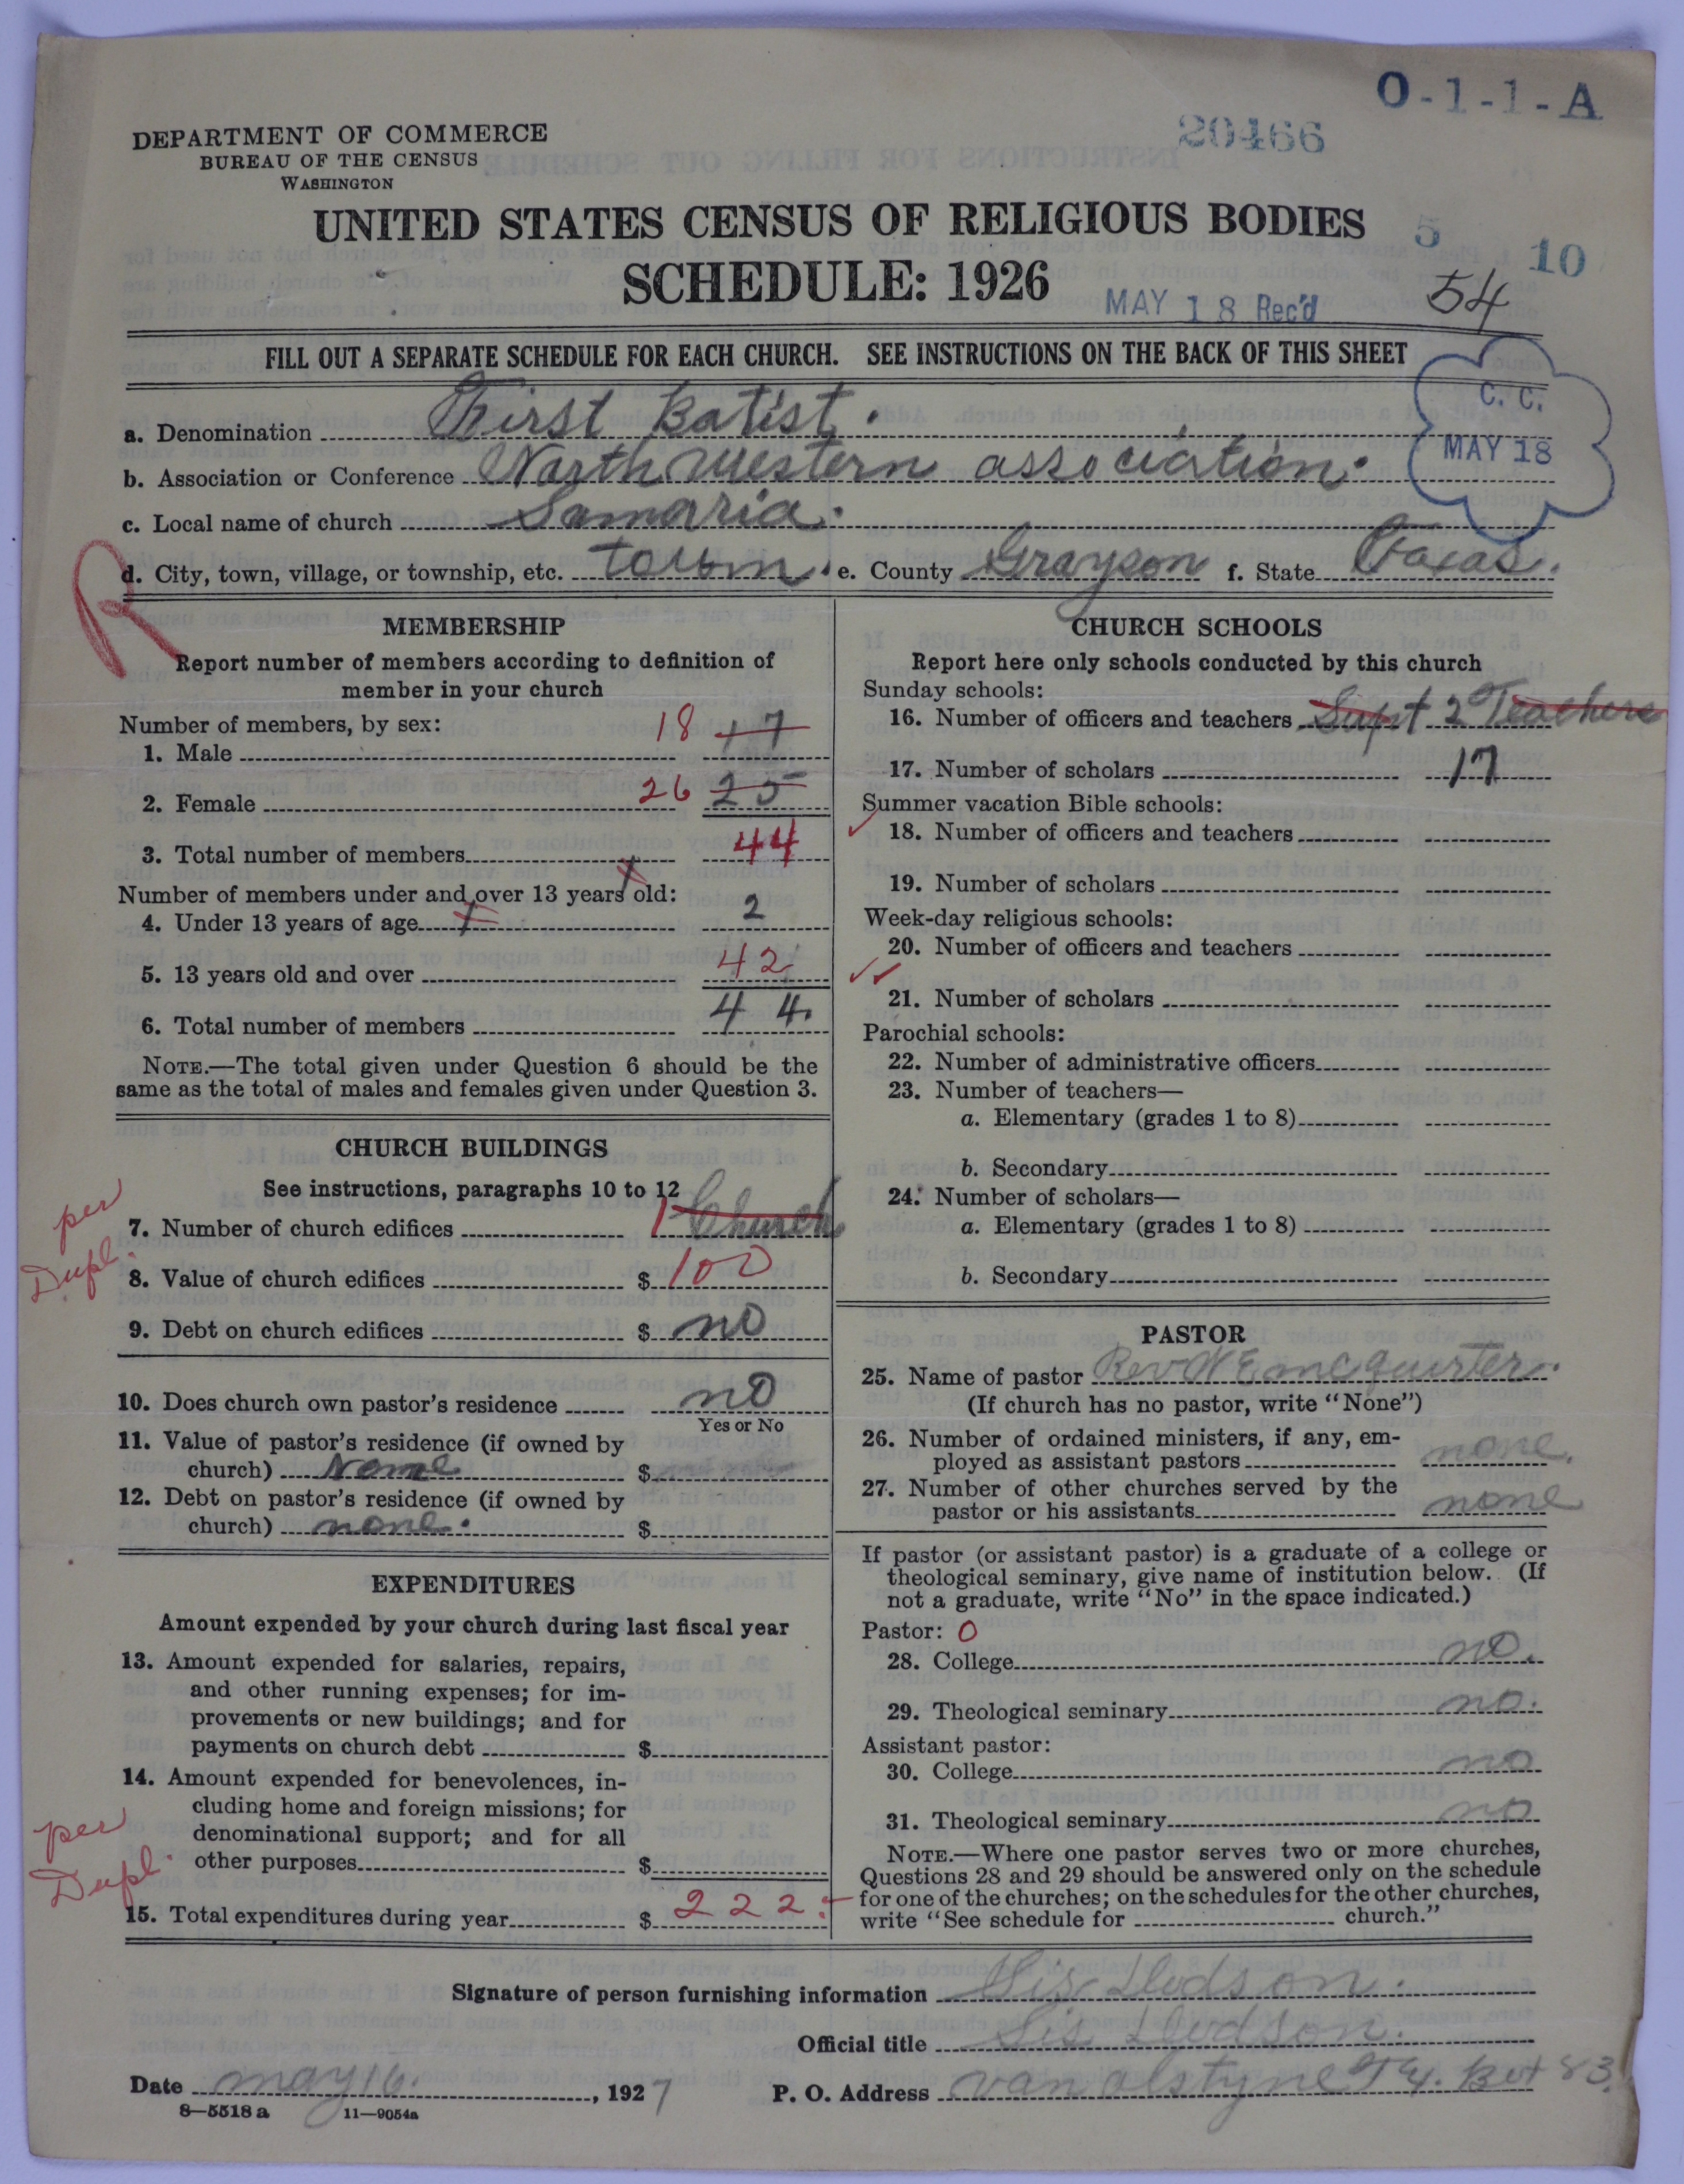 O-1-1-A
20466
DEPARTMENT OF COMMERCE
BUREAU OF THE CENSUS
WASHINGTON
UNITED STATES CENSUS OF RELIGIOUS BODIES
SCHEDULE: 1926
5
10
MAY 18 Rec'd
54
FILL OUT A SEPARATE SCHEDULE FOR EACH CHURCH. SEE INSTRUCTIONS ON THE BACK OF THIS SHEET
C. C.
MAY 18
a. Denomination First Batist.
b. Association or Conference North Western association.
c. Local name of church Samaria.
R
d. City, town, village, or township, etc. town. e. County Grayson f. State Texas.
MEMBERSHIP
Report number of members according to definition of
member in your church
Number of members, by sex:
1. Male 18 17
2. Female 26 25
3. Total number of members 44
Number of members under and over 13 years old:
4. Under 13 years of age 2
5. 13 years old and over 42
6. Total number of members 44.
NOTE.—The total given under Question 6 should be the
same as the total of males and females given under Question 3.
CHURCH BUILDINGS
See instructions, paragraphs 10 to 12
per
Dupl.
7. Number of church edifices 1 Church
8. Value of church edifices $ 100
9. Debt on church edifices $ no
10. Does church own pastor's residence no
Yes or No
11. Value of pastor's residence (if owned by
church) None $
12. Debt on pastor's residence (if owned by
church) none. $
EXPENDITURES
Amount expended by your church during last fiscal year
13. Amount expended for salaries, repairs,
and other running expenses; for im-
provements or new buildings; and for
payments on church debt $
14. Amount expended for benevolences, in-
cluding home and foreign missions; for
denominational support; and for all
other purposes $
per
Dupl.
15. Total expenditures during year $ 222.-
CHURCH SCHOOLS
Report here only schools conducted by this church
Sunday schools:
16. Number of officers and teachers Supt 2 Teachers
17. Number of scholars 17
Summer vacation Bible schools:
18. Number of officers and teachers
19. Number of scholars
Week-day religious schools:
20. Number of officers and teachers
21. Number of scholars
Parochial schools:
22. Number of administrative officers
23. Number of teachers—
a. Elementary (grades 1 to 8)
b. Secondary
24. Number of scholars—
a. Elementary (grades 1 to 8)
b. Secondary
PASTOR
25. Name of pastor Rev W E mcquirter.
(If church has no pastor, write "None")
26. Number of ordained ministers, if any, em-
ployed as assistant pastors none.
27. Number of other churches served by the
pastor or his assistants none
If pastor (or assistant pastor) is a graduate of a college or
theological seminary, give name of institution below. (If
not a graduate, write "No" in the space indicated.)
Pastor: 0
28. College no.
29. Theological seminary no.
Assistant pastor:
30. College no
31. Theological seminary no
NOTE.—Where one pastor serves two or more churches,
Questions 28 and 29 should be answered only on the schedule
for one of the churches; on the schedules for the other churches,
write "See schedule for church."
Signature of person furnishing information Sis Hudson.
Official title Sis Hudson.
Date may 16., 1927 P. O. Address van alstyne Tx. Box 83.
8—5518 a 11—9054a